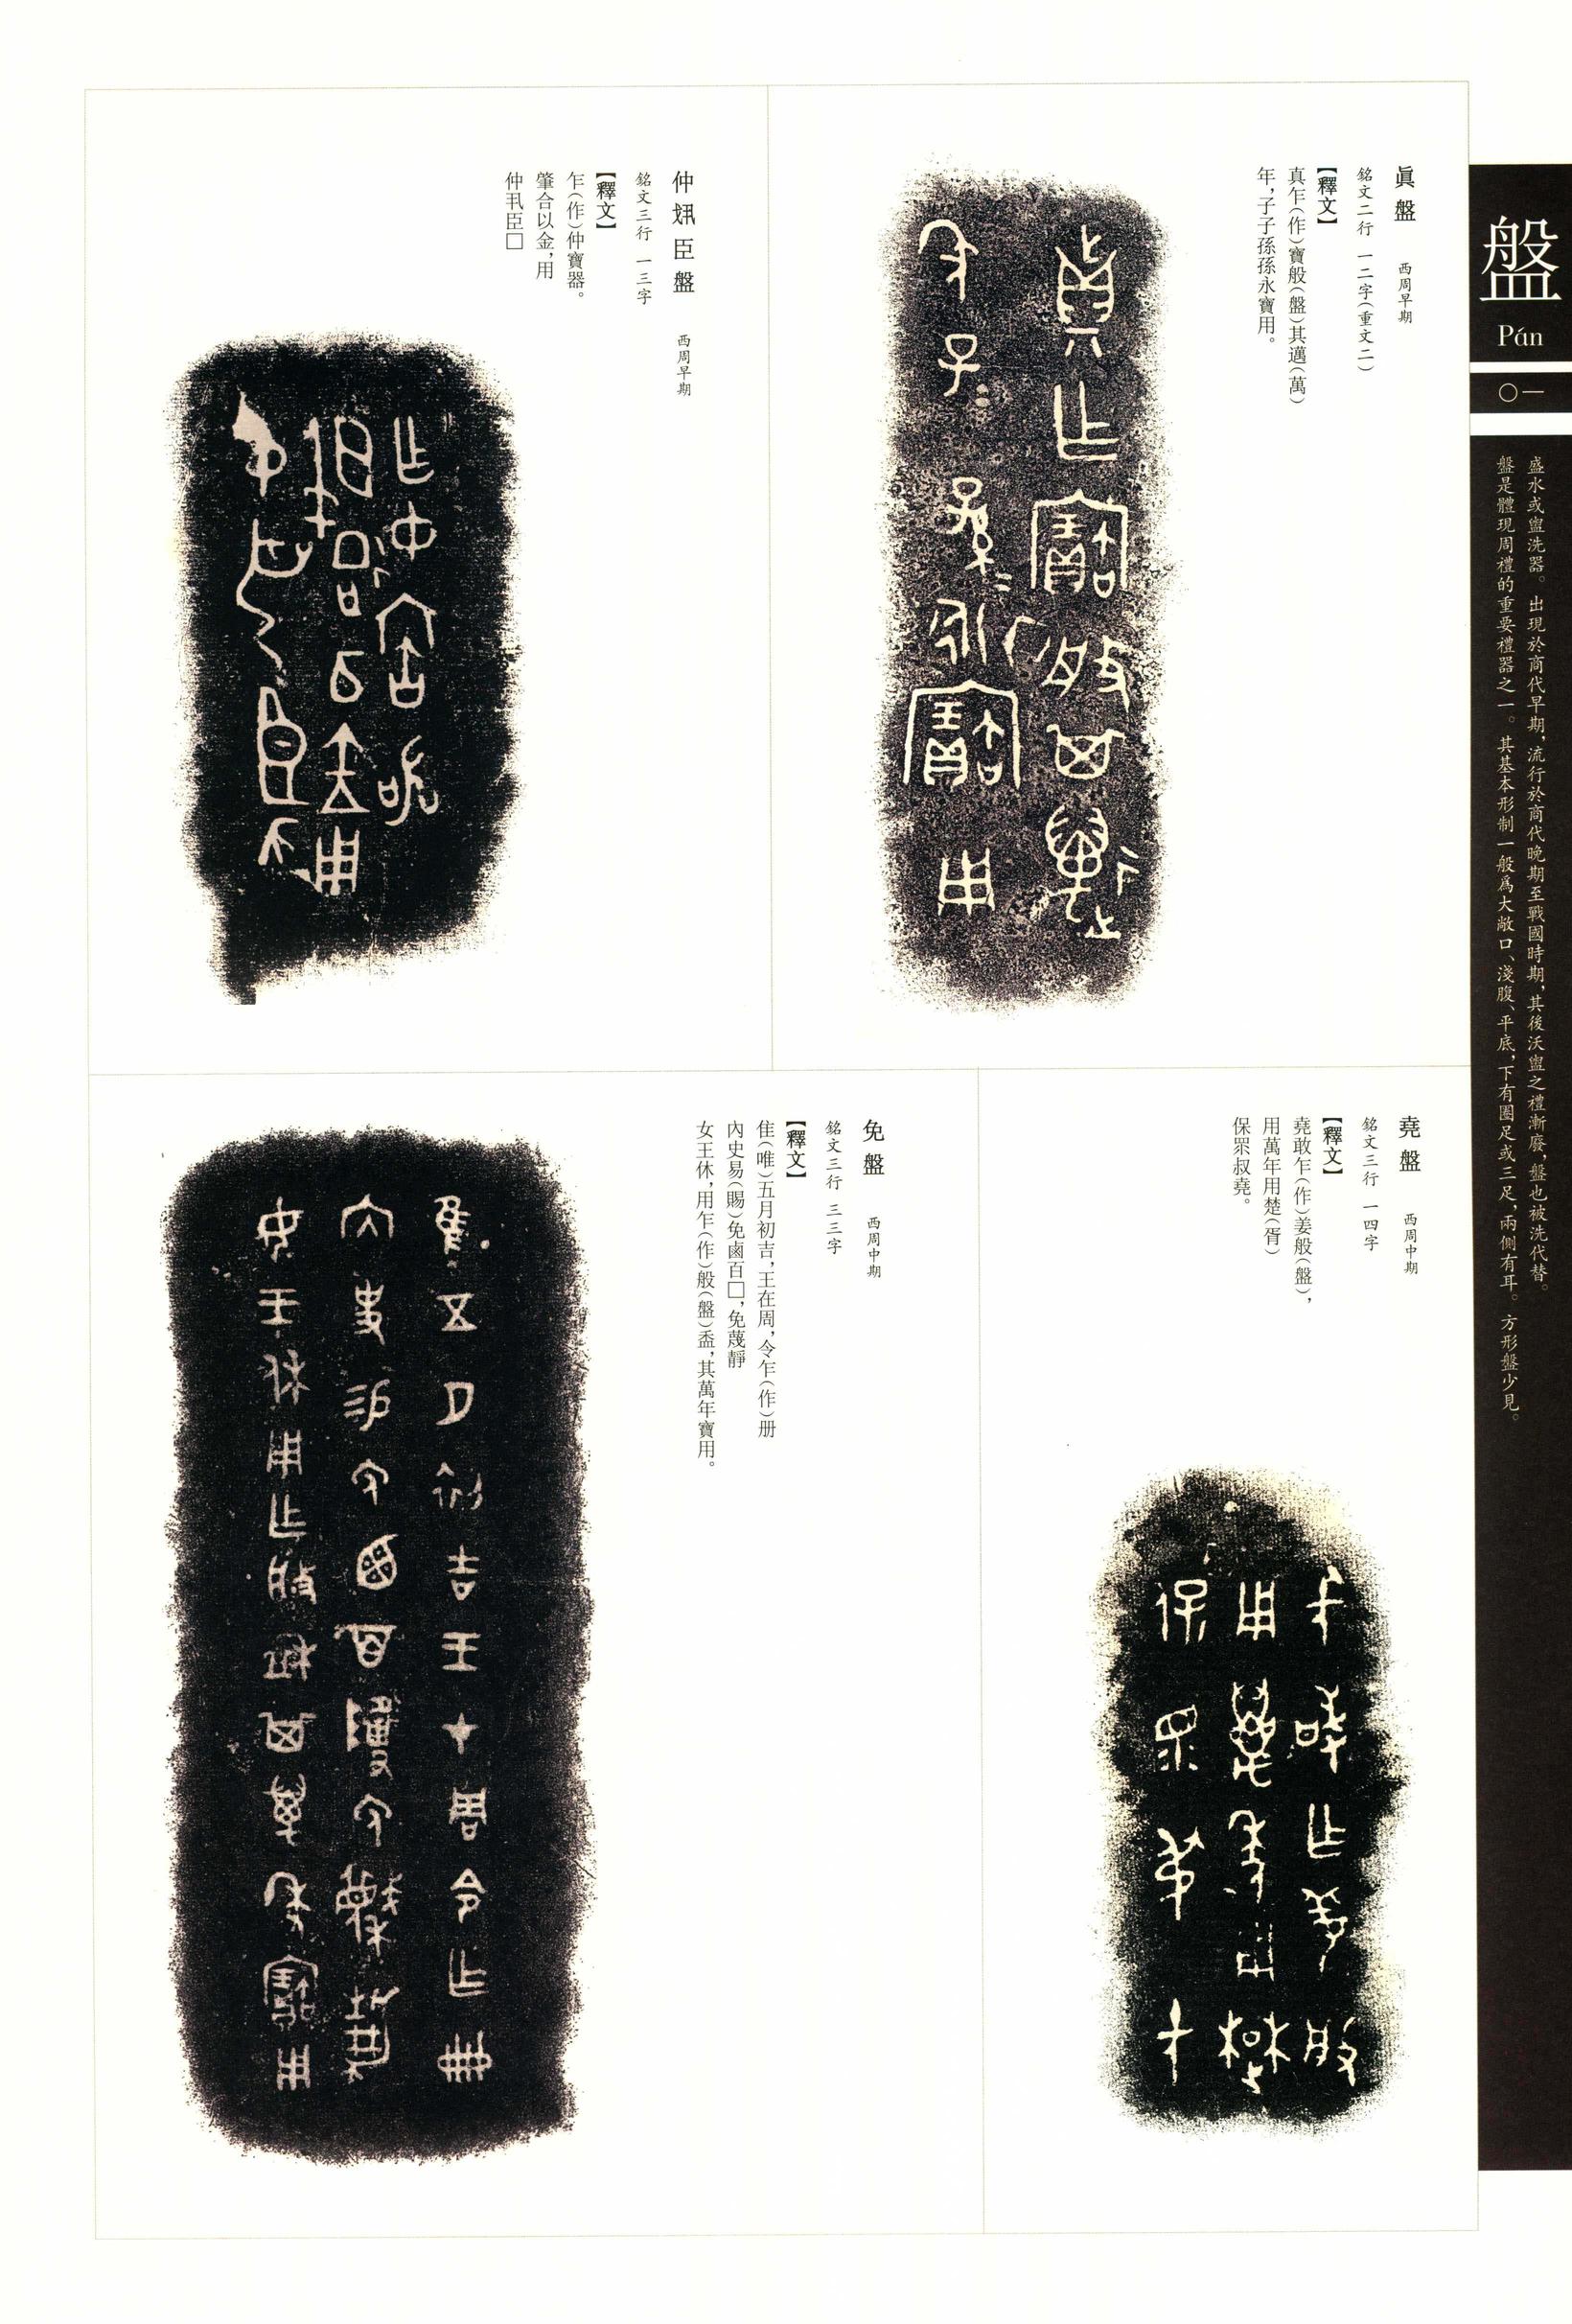 盤
Pán
〇一
盛水或盥洗器。出現於商代早期，流行於商代晚期至戰國時期，其後沃盥之禮漸廢，盤也被洗代替。
盤是體現周禮的重要禮器之一。其基本形制一般爲大敞口、淺腹、平底，下有圈足或三足，兩側有耳。方形盤少見。
眞盤 西周早期
銘文二行 一二字（重文二）
【釋文】
真乍（作）寶般（盤）其邁（萬）
年，子子孫孫永寶用。
仲𡖊臣盤 西周早期
銘文三行 一三字
【釋文】
乍（作）仲寶器。
肇合以金，用
仲丮臣□
堯盤 西周中期
銘文三行 一四字
【釋文】
堯敢乍（作）姜般（盤），
用萬年用楚（胥）
保眔叔堯。
免盤 西周中期
銘文三行 三三字
【釋文】
隹（唯）五月初吉，王在周，令乍（作）册
內史易（賜）免鹵百□，免蔑靜
女王休，用乍（作）般（盤）盉，其萬年寶用。